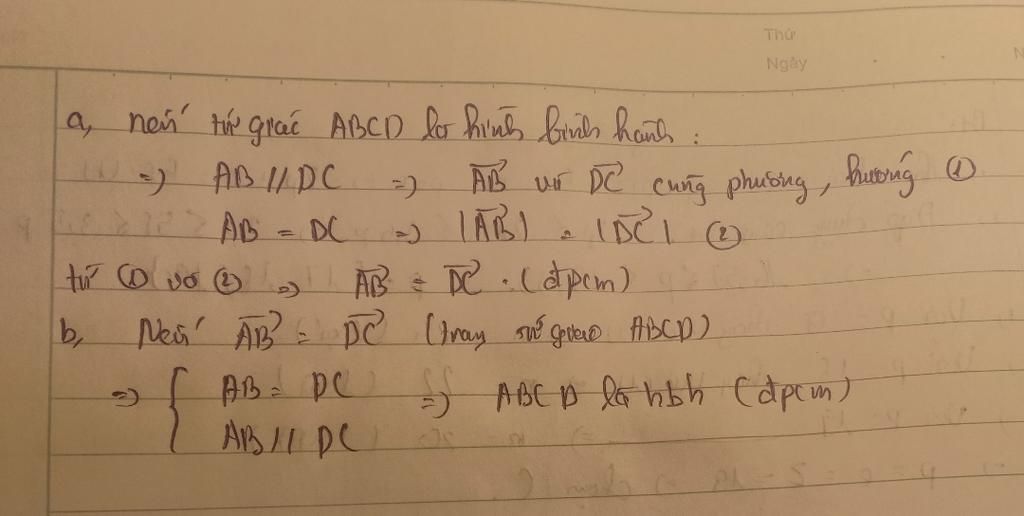 Thứ
Ngày
a, nếu tứ giác ABCD là hình bình hành:
=> AB // DC => \overrightarrow{AB} và \overrightarrow{DC} cùng phương, hướng ①
AB = DC => |\overrightarrow{AB}| = |\overrightarrow{DC}| ②
từ ① và ② => \overrightarrow{AB} = \overrightarrow{DC}. (đpcm)
b, Nếu \overrightarrow{AB} = \overrightarrow{DC} ( tứ giác ABCD)
=> { AB = DC => ABCD là hbh (đpcm)
AB // DC